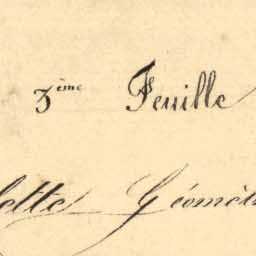 3ème Feuille
lette Géomèt